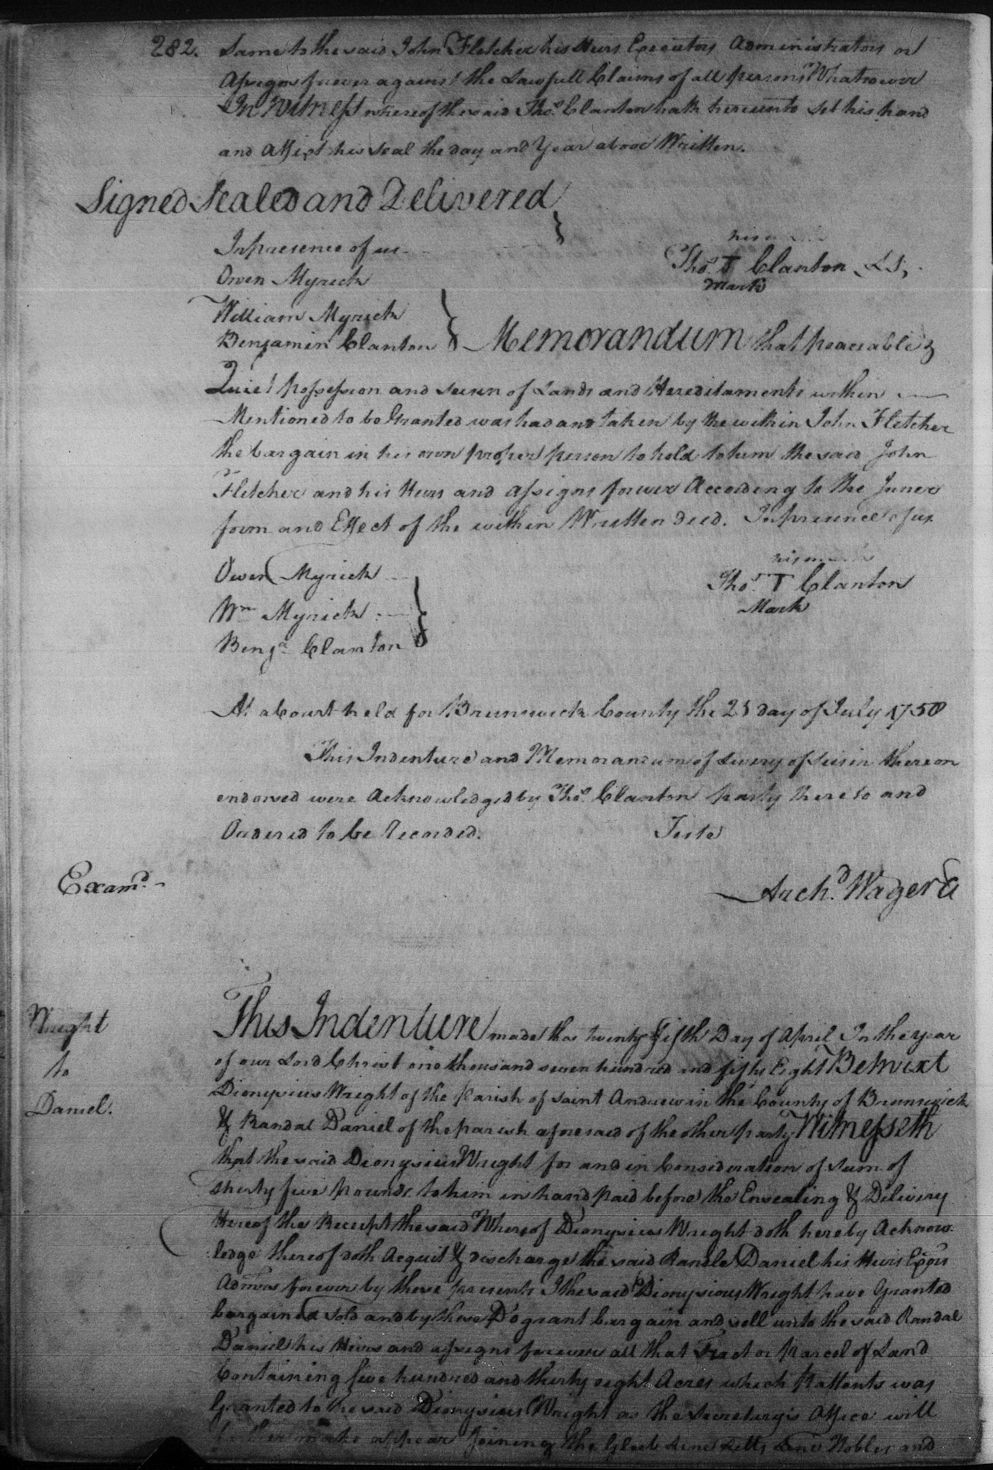 282. Same to the said John Fletcher his Heirs Executors Administrators or
Assigns forever against the Lawfull Claims of all persons Whatsoever
In Witness whereof the said Thos. Clanton hath hereunto Set his hand
and Affixt his Seal the day and Year above Written.
Signed Sealed and Delivered
In presence of us
his
Owen Myrick
Thos. T Clanton LS,
Mark
William Myrick
Benjamin Clanton
Memorandum that peaceable &
Quiet possession and seisen of Lands and Hereditaments within
Mentioned to be Granted was had and taken by the within John Fletcher
the bargain in his own proper person to hold to him the said John
Fletcher and his Heirs and assigns forever According to the
form and Effect of the within Written deed. In presence of us
his
Owen Myrick
Thos. T Clanton
Mark
Wm Myrick
Benja. Clanton
At a Court held for Brunswick County the 25 day of July 1758
This Indenture and Memorandum of Livery of Seisin thereon
endorsed were Acknowledged by Thos. Clanton party thereto and
Ordered to be Recorded. Teste
Examd.
Archd. Wager
Wright
to
Daniel.
This Indenture made tha twenty fifth Day of April In the year
of our Lord Christ one thousand seven hundred and fifty Eight Betwixt
Dionysius Wright of the Parish of Saint Andrew in the County of Brunswick
& Randal Daniel of the parish aforesaid of the other party Witnesseth
that the said Dionysius Wright for and in Consideration of Sum of
thirty five pounds to him in hand paid before the Ensealing & Delivery
Hereof the Receipt the said Whereof Dionysius Wright doth hereby Acknow
ledge thereof doth Acquit & discharge the said Randle Daniel his Heirs
forever by these presents I the said Dionysious Wright have Granted
bargained Sold and by these Do grant bargain and sell unto the said Randal
Daniel his Heirs and assigns forever all that Tract or Parcel of Land
Containing five hundred and thirty eight Acres which Pattents was
Granted to the said Dionysius Wright as the Secretery's Office will
make appear Joining the Glebe Line Line Nobles and